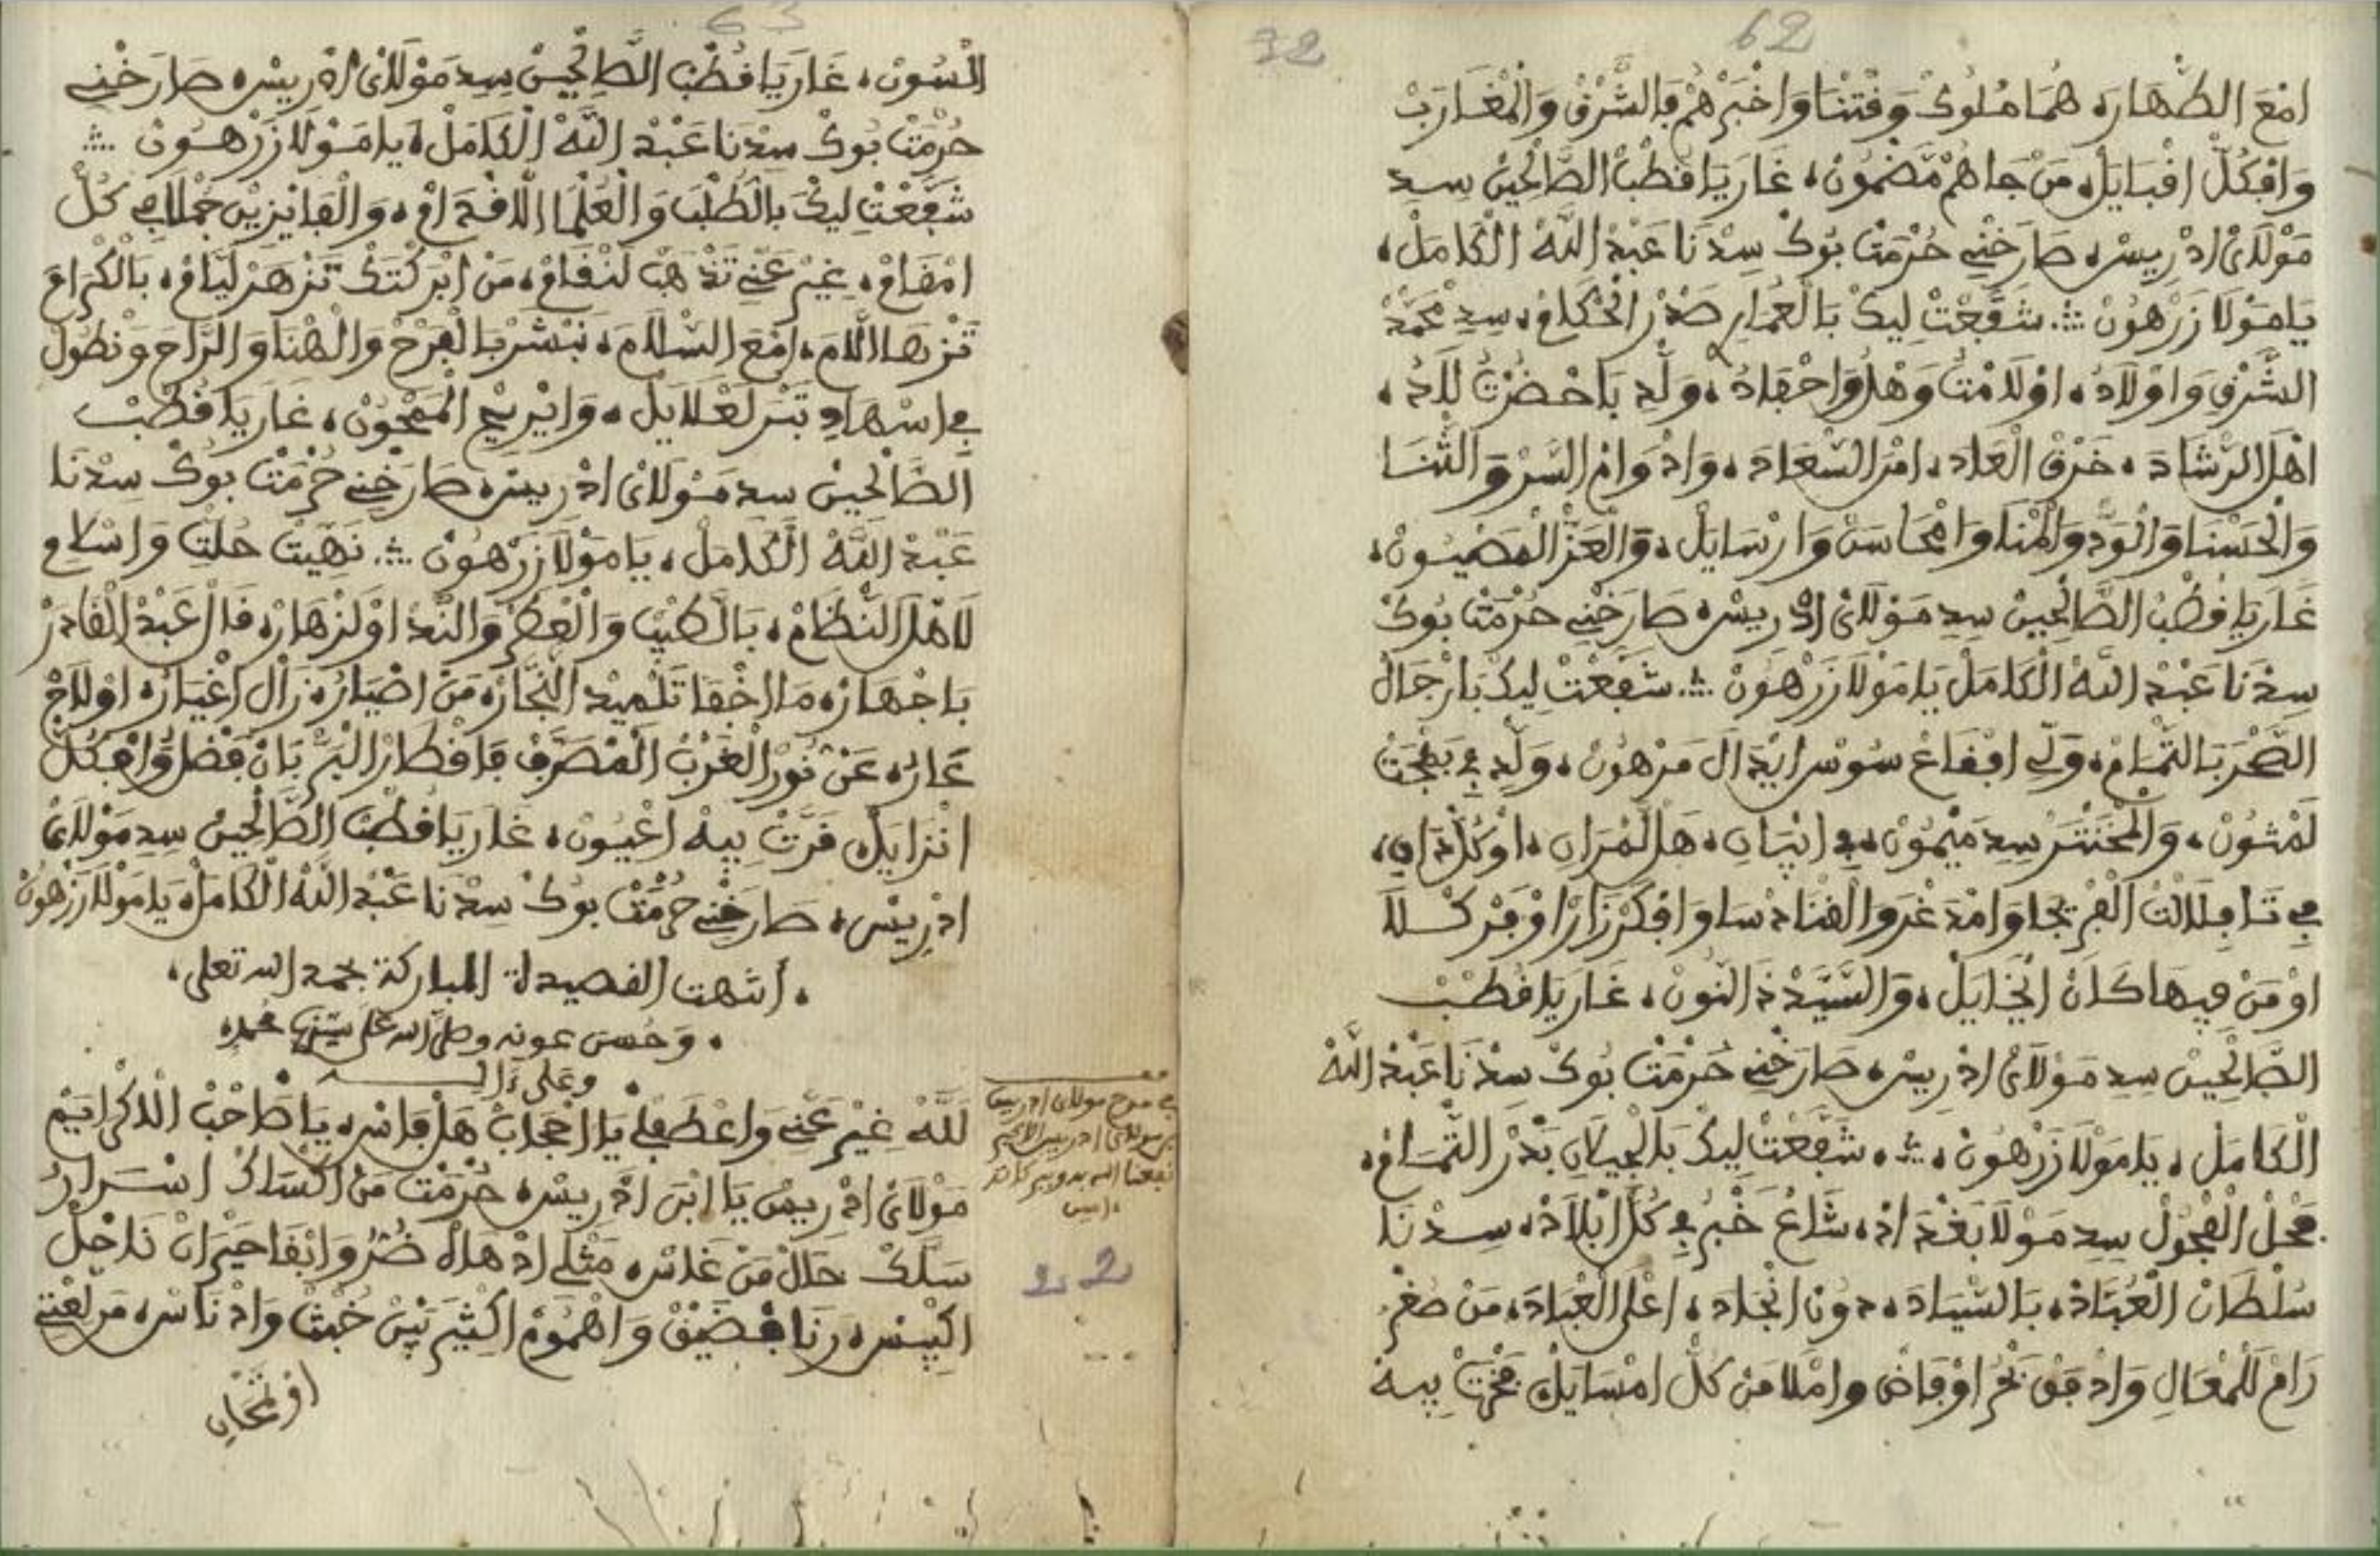 62
32
امْعَ الطّْهَارَه هُمَا مْلُوكْ وَقْتْنَا وَاخْبَرْهُمْ فَالشَّرْقْ وَالْمْغَارَبْ
وَافْكُلّْ اقْبَايَلْ، مَنْ جَاهُمْ مَضْمُونْ، غَارَ يَا قُطْبْ الصَّالْحِينْ سِدِ
مَوْلَايْ ادْرِيسْ، صَارَخْنِي حُرْمَتْ بُوكْ سِدْنَا عَبْدْ اللَّهْ الْكَامَلْ،
يَا مَوْلَا زَرْهُونْ ؞ شَفَّعْتْ لِيكْ بَالْعْمَارِ صَدْرْ الْحُكَّامْ، سِدِ مْحَمَّدْ
الشَّرْقِ وَاوْلَادُ، اوْلَامْتُ وَهْلُ وَاحْفَادُ، وَلِّدِ بَاحْضَرْتُ لَلَادُ،
اهْلْ الرّْشَادَ، خَرْقْ الْعَادَ، امْرَ السّْعَادَ، وَادْوَامْ السَّرّْ وَالثّْنَا
وَالْحَسْنَا وَالْوَدّْ وَالْمْنَا وَامْحَاسَنْ وَارْسَايَلْ، وَالْعَزّْ الْمَصْيُونْ،
غَارَ يَا قُطْبْ الصَّالْحِينْ سِدِ مَوْلَايْ ادْرِيسْ، صَارَخْنِي حُرْمَتْ بُوكْ
سِدْنَا عَبْدْ اللَّهْ الْكَامَلْ يَا مَوْلَا زَرْهُونْ ؞ شَفَّعْتْ لِيكْ بَارْجَالْ
الصَّحْرَ بَالتّْمَامْ، وَلِّي افْقَاعْ سُوسْ ابْدَالْ مَرْهُونْ، وَلِّدِ فِي بَهْجَتْ
لَمْتُونْ، وَالْمَخْنْتَرْ سِدِ مَيْمُونْ، فِي اتْبَانِ، هَلْ لَمْرَانِ، اوْكُلّْ دَانِ،
فِي تَافِلَالْتْ الْفْرِيجَا وَامْدَغْرَ وَالْقْنَادْسَا وَافْكَرْزَازْ اوْفَرْكْلَا
اوْمَنْ فِيهَا كَانْ انْخَايَلْ، وَالسَّيَّدْ ذَ النُّونْ، غَارَ يَا قُطْبْ
الصَّالْحِينْ سِدِ مَوْلَايْ ادْرِيسْ، صَارَخْنِي حُرْمَتْ بُوكْ سِدْنَا عَبْدْ اللَّهْ
الْكَامَلْ، يَا مَوْلَا زَرْهُونْ، ؞، شَفَّعْتْ لِيكْ بَالْجِيلَانِ بَدْرْ التّْمَامْ،
فَحْلْ الْفْحُولْ سِدِ مَوْلَا بَغْدَادْ، شَاعْ خَبْرُ فِي كُلّْ ابْلَادْ، سِدْنَا
سُلْطَانْ الْعُبَّادْ، بَالسّْيَادَ، دُونْ انْجَادَ، اعْلَى الْعْبَادَ، مَنْ صُغْرُ
رَامْ لَلْمْعَالِ وَادْفَقْ بَحْرُ اوْفَاضْ وَامْلَا مَنْ كُلّْ امْسَايَلْ، فْخَرْتْ بِيهْ
63
السُّونْ، غَارَ يَا قُطْبْ الصَّالْحِينْ سِدِ مَوْلَايْ ادْرِيسْ، صَارَخْنِي
حُرْمَتْ بُوكْ سِدْنَا عَبْدْ اللَّهْ الْكَامَلْ، يَا مَوْلَا زَرْهُونْ ؞
شَفَّعْتْ لِيكْ بَالطُّلْبَ وَالْعُلْمَا الَافْدَامْ، وَالْفَايْزِينْ جُمْلَا فِي كُلّْ
امْقَامْ، غِيرْ عَنِّي تَذْهَبْ لَسْقَامْ، مَنْ ابْرَكْتَكْ تَزْهَرْ لَيَّامْ، بَالْكْرَامَ
تَزْهَا اللَّامَ، امْعَ السّْلَامَ، نَبْشَرْ بَالْفْرَحْ وَالْهْنَا وَالرَّاحَ وَنْطُولْ
فِي اسْهَادِ تَبْرَ لَعْلَايَلْ، وَايْرِيحْ الْمَمْحُونْ، غَارَ يَا قُطْبْ
الصَّالْحِينْ سِدِ مَوْلَايْ ادْرِيسْ، صَارَخْنِي حُرْمَتْ بُوكْ سِدْنَا
عَبْدْ اللَّهْ الْكَامَلْ، يَا مَوْلَا زَرْهُونْ ؞ نَهِّيتْ حُلّْتِ وَاسْلَامِ
لَاهْلْ النّْظَامْ، بَالطِّيبْ وَالْعْطَرْ وَالنَّدّْ اوْلَزْهَارْ، قَالْ عَبْدْ الْقَادَرْ
بَاجْهَارْ، مَا اخْفَا تَلْمِيدْ النَّجَّارْ، مَنْ اضْيَارُ، زَالْ اغْيَارُ، اوْلَاحْ
عَارُ، عَنْ نُورْ الْغَرْبْ الْمْصَرَّفْ فَاقْطَارْ الْبَرّْ بَانْ فَضْلُ وَافْكُلّْ
انْزَايَلْ، قَرَّتْ بِيهْ اعْيُونْ، غَارَ يَا قُطْبْ الصَّالْحِينْ سِدِ مَوْلَايْ
ادْرِيسْ، صَارَخْنِي حُرْمَتْ بُوكْ سِدْنَا عَبْدْ اللَّهْ الْكَامَلْ، يَا مَوْلَا زَرْهُونْ
، انتهت القصيدة المباركة بحمد الله تعلى،
، وَحُسن عونه وصلى الله على سيدنا محمد،
وعلى ءاله
لَلَّهْ غِيرْ عَنِّي وَاعْطَفْ لِي يَا اعْجَابْ هَلْ فَاسْ، يَا صَاحْبْ الْاكْرَايَمْ
مَوْلَايْ ادْرِيسْ يَا ابْنَ ادْرِيسْ، حُرْمَتْ مَنْ اكْسَاكْ اسْرَارُ
سَلَّكْ حَالْ مَنْ غَلَّاسْ، مَثْلِي ادْهَاهْ ضُرُّ وَابْقَا حَيْرَانْ نَاحْلْ
اكْبِيسْ، رَنَا فْضَيْقْ وَاهْمُومْ اكْثِيرْ بَيْنْ خُبْثْ وَادْنَاسْ، مَرْ لَعْتِي
في مدح مولاي ادريس
بن مولاي ادريس الاكبر
نفعنا الله به
ءامين
22